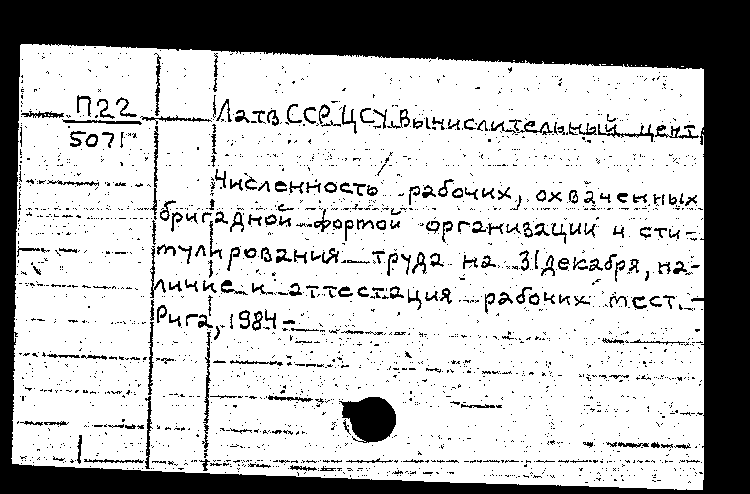 П22
5071
Латв ССР. ЦСУ. Вычислительный центр
Численность рабочих, охваченных
бригадной формой организации и сти-
мулирования труда на 31 декабря, на-
личие и аттестация рабочих мест. –
Рига, 1984 –